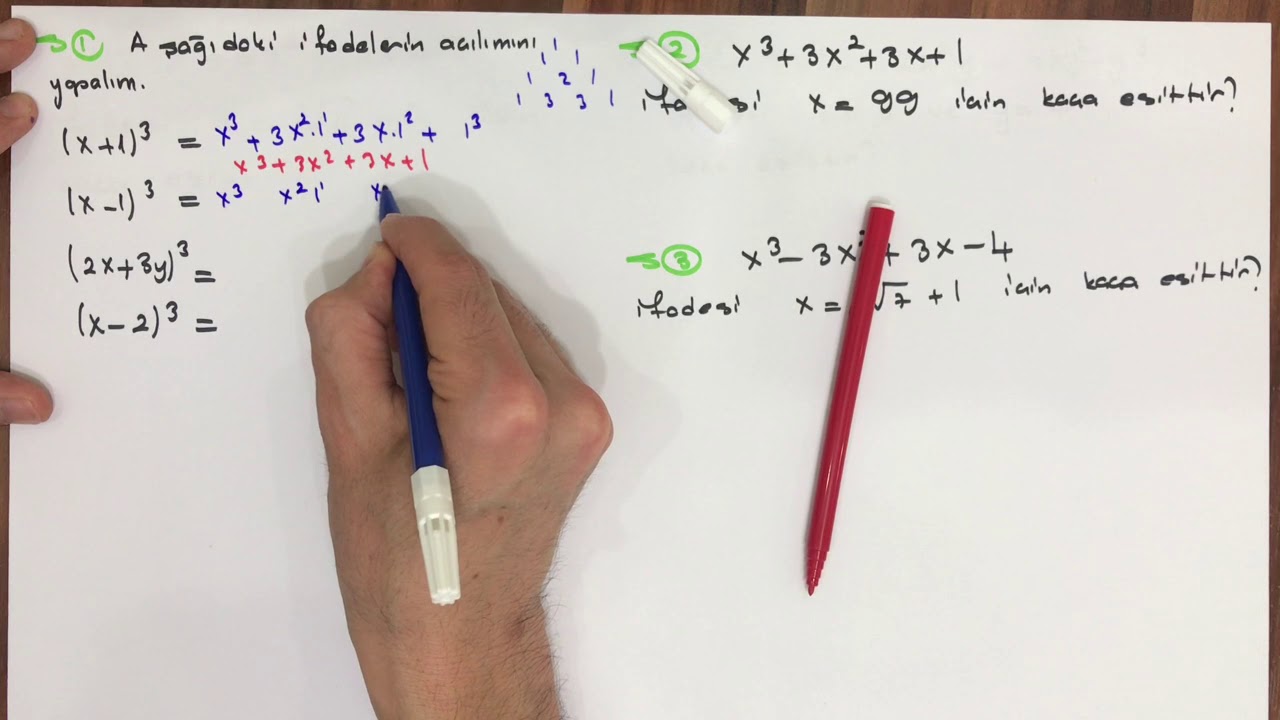 ① Aşağıdaki ifadelerin açılımını
yapalım.
1 1
1 2 1
1 3 3 1
(x+1)³ = x³ + 3x².1¹ + 3x.1² + 1³
x³ + 3x² + 3x + 1
(x-1)³ = x³ x² 1¹ x
(2x+3y)³ =
(x-2)³ =
② x³ + 3x² + 3x + 1
ifadesi x = 99 için kaça eşittir?
③ x³ - 3x² + 3x - 4
ifadesi x = √7 + 1 için kaça eşittir?